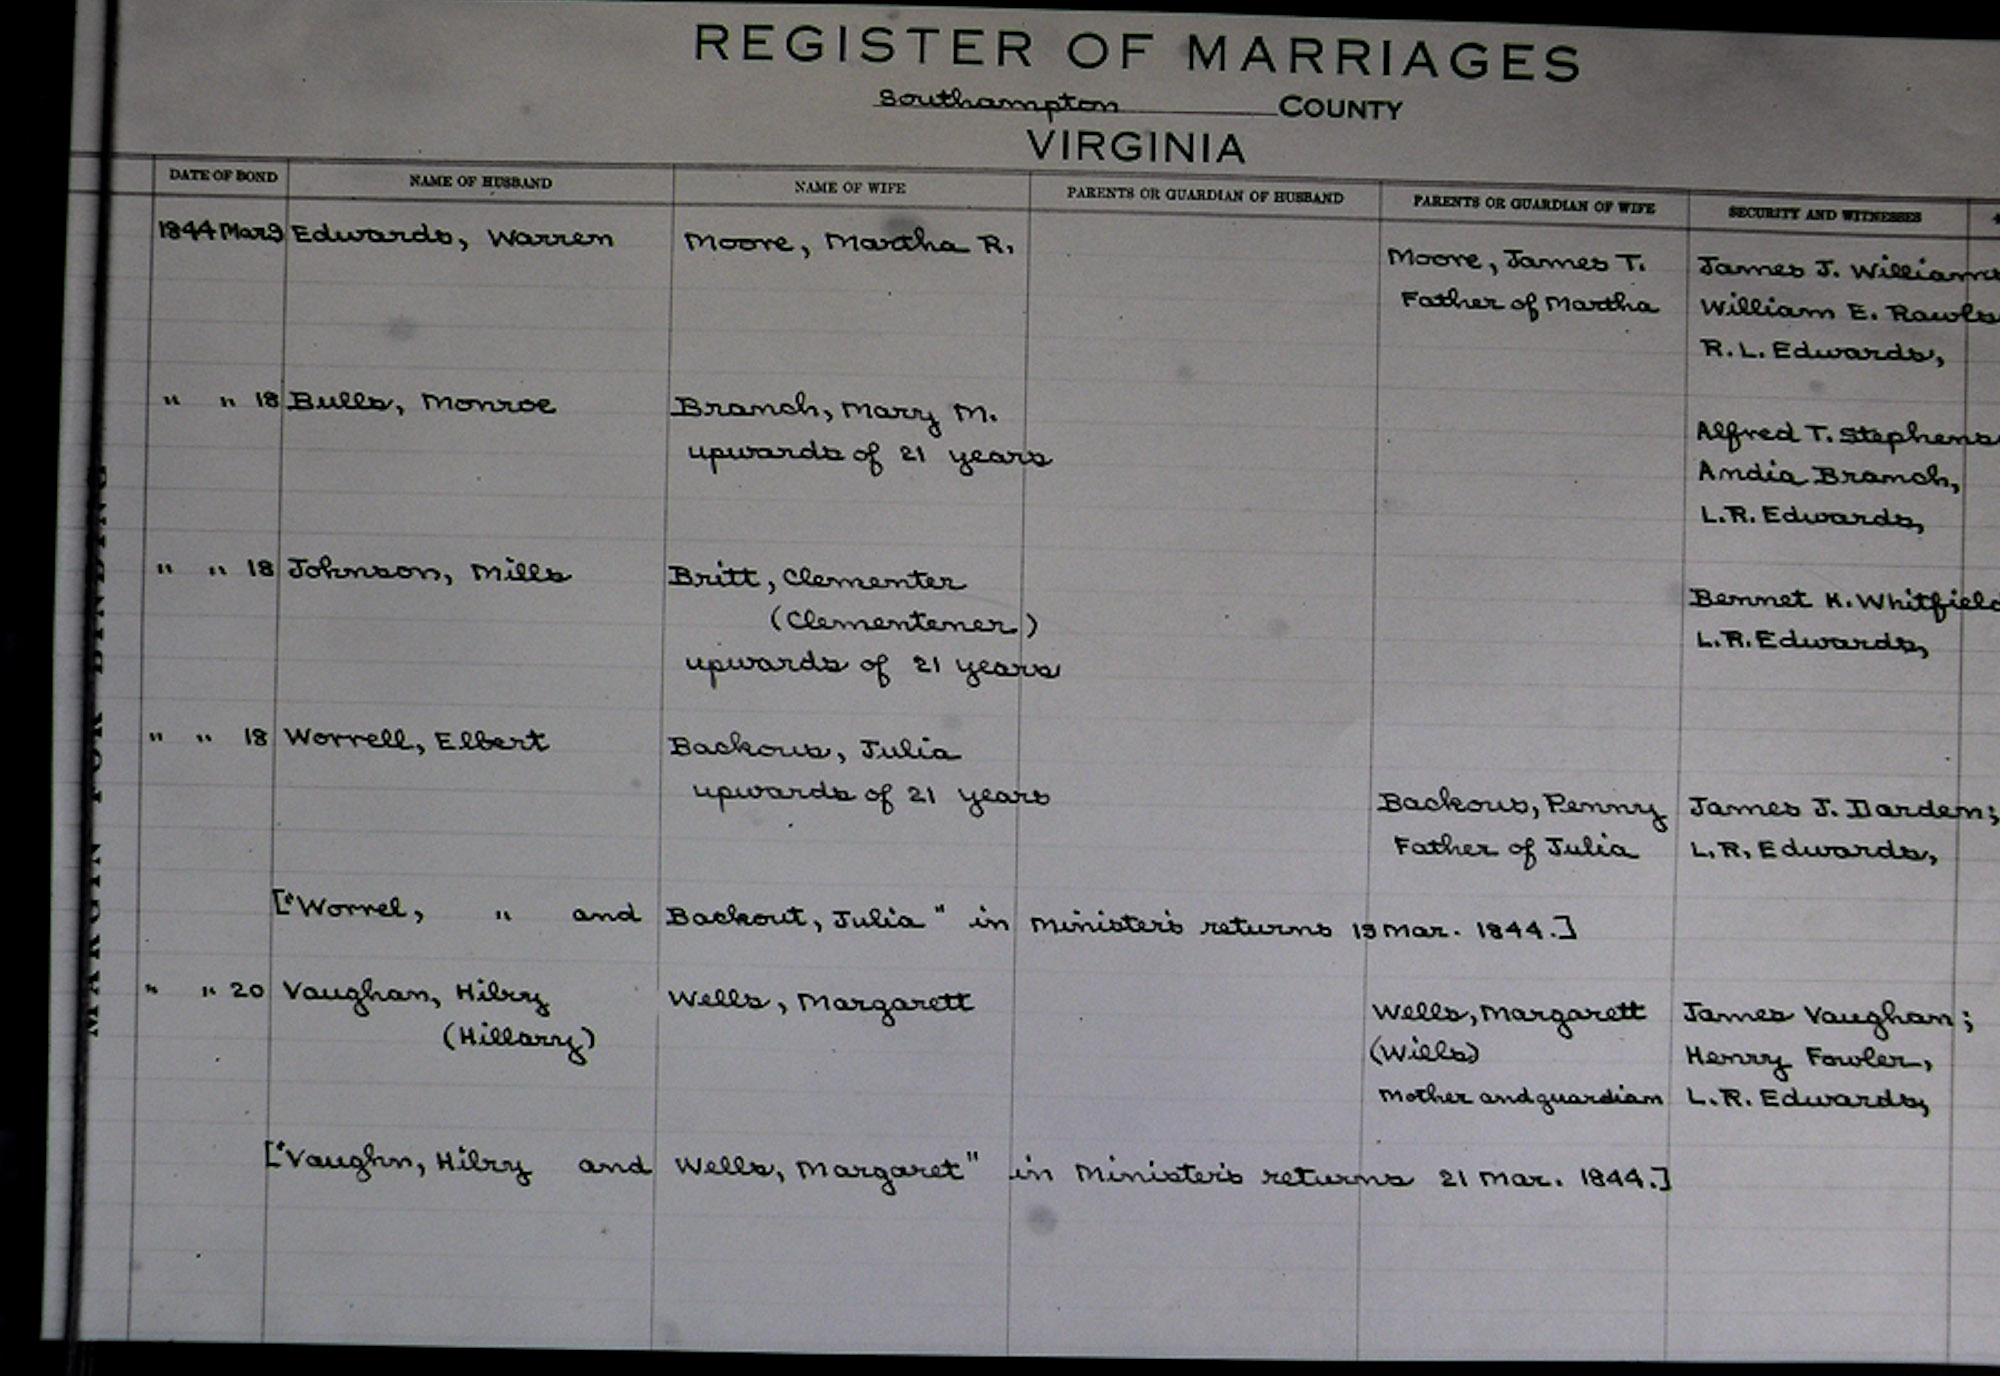 REGISTER OF MARRIAGES
Southampton COUNTY
VIRGINIA
DATE OF BOND NAME OF HUSBAND NAME OF WIFE PARENTS OR GUARDIAN OF HUSBAND PARENTS OR GUARDIAN OF WIFE SECURITY AND WITNESSES
1844 Mar 9 Edwards, Warren Moore, Martha R. Moore, James T. James J. Williams
Father of Martha William E. Rawls
R. L. Edwards,
" " 18 Bulls, Monroe Branch, Mary M. Alfred T. Stephens
upwards of 21 years Andia Branch,
L.R. Edwards,
" " 18 Johnson, Mills Britt, Clementer Bennet K. Whitfield
(Clementener) L.R. Edwards,
upwards of 21 years
" " 18 Worrell, Elbert Backous, Julia
upwards of 21 years Backous, Penny James J. Darden;
Father of Julia L.R. Edwards,
["Worrel, " and Backout, Julia" in Minister's returns 19 Mar. 1844.]
" " 20 Vaughan, Hilry Wells, Margarett Wells, Margarett James Vaughan;
(Hillarry) (Wills) Henry Fowler,
Mother and guardian L.R. Edwards,
["Vaughn, Hilry and Wells, Margaret" in Minister's returns 21 Mar. 1844.]
MARGIN FOR BINDING